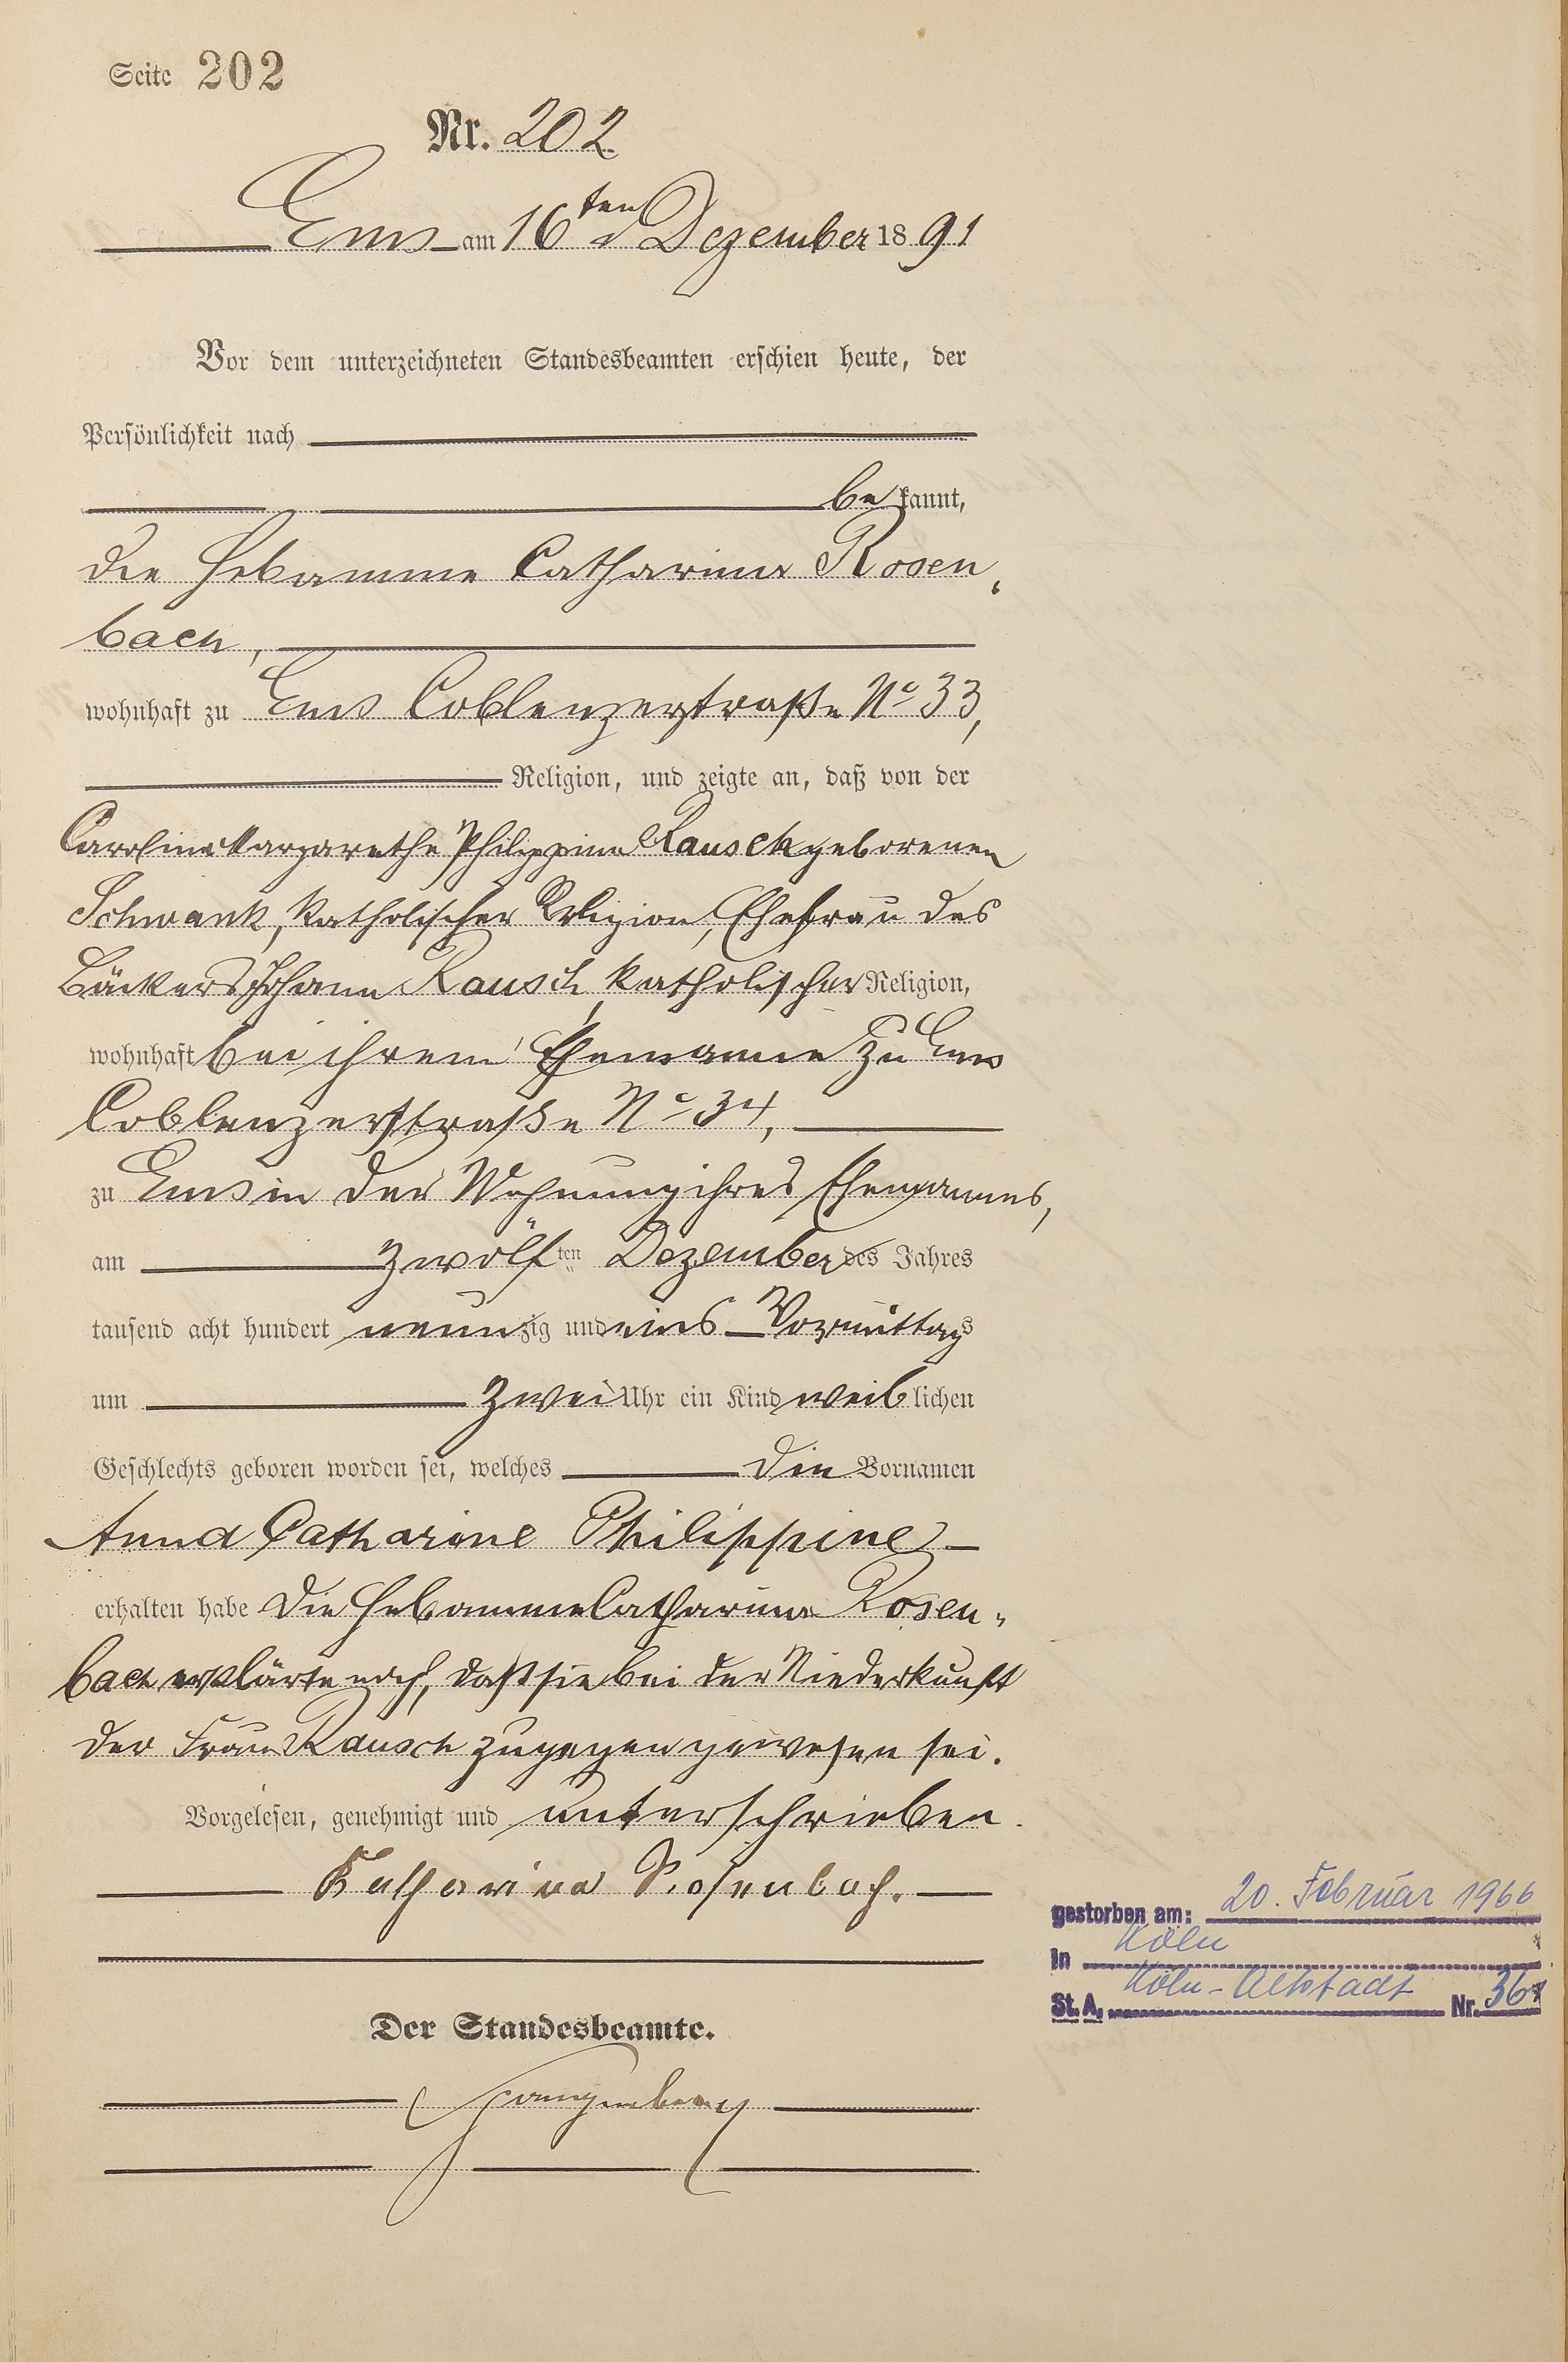 Seite 202
Nr. 202
Ems am 16ten Dezember 1891
Vor dem unterzeichneten Standesbeamten erschien heute, der
Persönlichkeit nach
bekannt,
die Hebamme Catharina Rosen„
bach,
wohnhaft zu Ems Coblenzerstraße No 33,
Religion, und zeigte an, daß von der
Caroline Margarethe Philippine Rausch geborenen
Schwank, katholischer Religion, Ehefrau des
Bäckers Johann Rausch, katholischer Religion,
wohnhaft bei ihrem Ehemanne zu Ems
Coblenzerstraße No 34,
zu Ems in der Wohnung ihres Ehemannes,
am zwölften Dezember des Jahres
tausend acht hundert neunzig und eins Vormittags
um zwei Uhr ein Kind weiblichen
Geschlechts geboren worden sei, welches die Vornamen
Anna Catharine Philippine
erhalten habe Die Hebamme Catharina Rosen„
bach erklärte noch, daß sie bei der Niederkunft
der Frau Rausch zugegen gewesen sei.
Vorgelesen, genehmigt und unterschrieben.
Katharina Rosenbach.
Der Standesbeamte.
gestorben am: 20. Februar 1966
in Köln
St. A. Köln-Altstadt Nr.